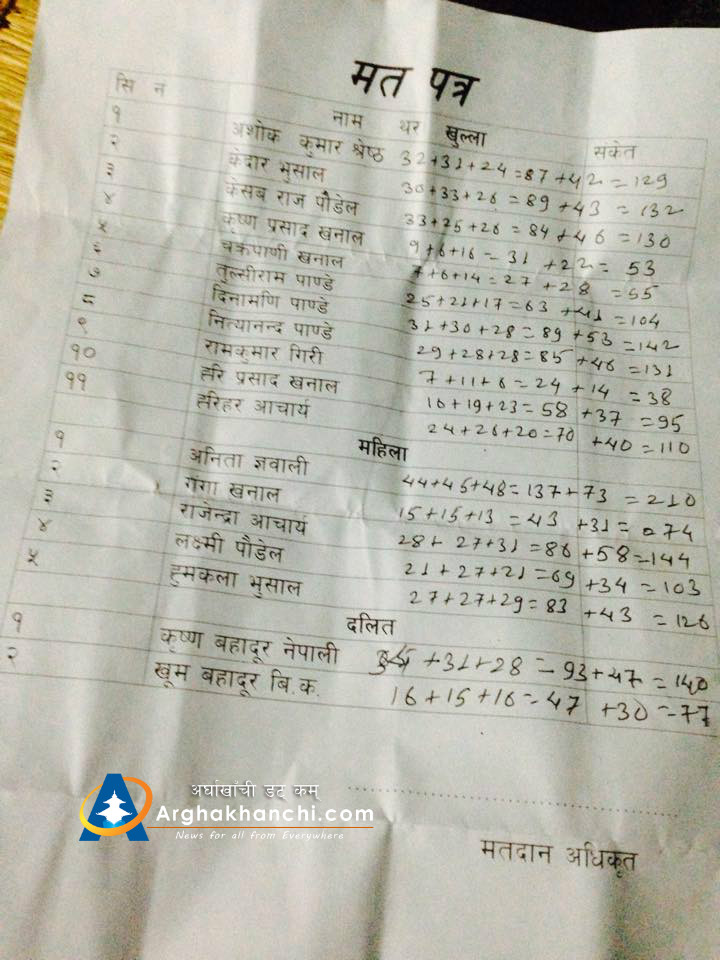 मत पत्र
सि न नाम थर खुल्ला संकेत
१ अशोक कुमार श्रेष्ठ 32+31+24=87+42=129
२ केदार भुसाल 30+33+26=89+43=132
३ केसब राज पौडेल 33+25+26=84+46=130
४ कृष्ण प्रसाद खनाल 9+6+16=31+22=53
५ चक्रपाणी खनाल 7+6+14=27+28=55
६ तुल्सीराम पाण्डे 25+21+17=63+41=104
७ दिनामणि पाण्डे 31+30+28=89+53=142
८ नित्यानन्द पाण्डे 29+28+28=85+46=131
९ रामकुमार गिरी 7+11+6=24+14=38
१० हरि प्रसाद खनाल 16+19+23=58+37=95
११ हरिहर आचार्य 24+26+20=70+40=110
महिला
१ अनिता ज्ञवाली 44+45+48=137+73=210
२ गंगा खनाल 15+15+13=43+31=74
३ राजेन्द्रा आचार्य 28+27+31=86+58=144
४ लक्ष्मी पौडेल 21+27+21=69+34=103
५ हुमकला भुसाल 27+27+29=83+43=126
दलित
१ कृष्ण बहादूर नेपाली +31+28=93+47=140
२ खूम बहादूर बि.क. 16+15+16=47+30=77
अर्घाखाँची डट् कम्
Arghakhanchi.com
News for all from Everywhere
मतदान अधिकृत